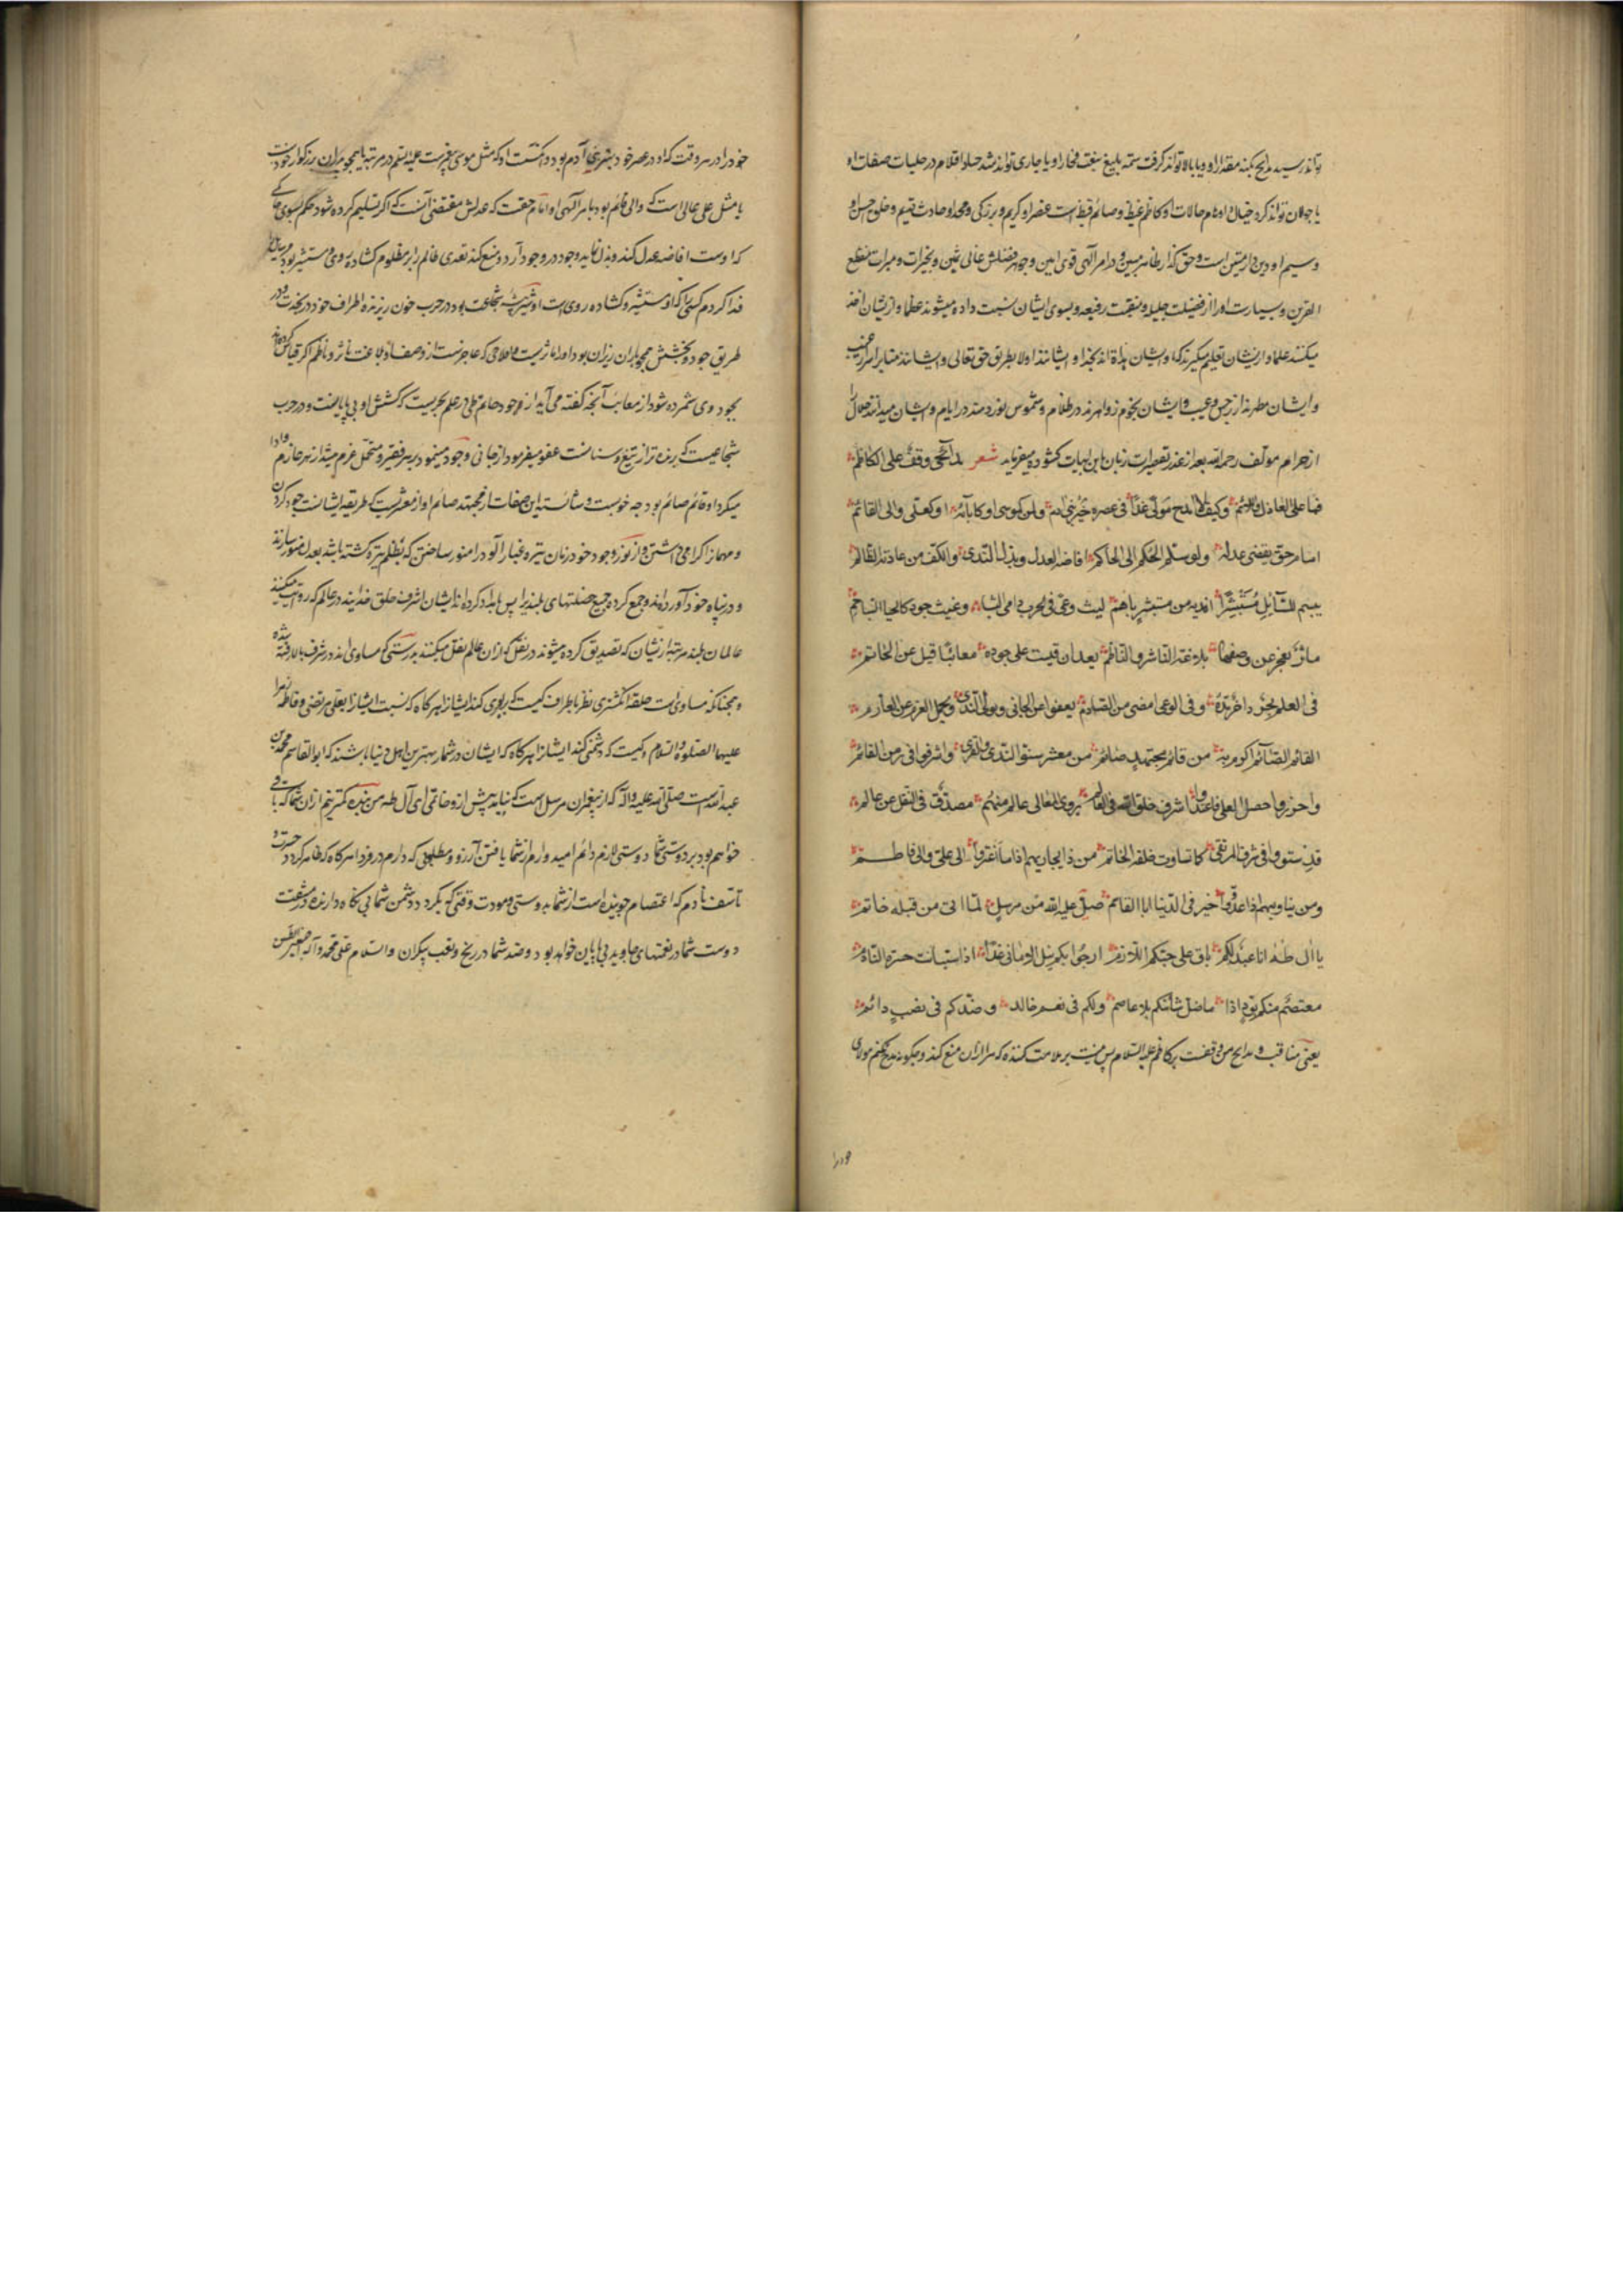 تواند رسید مدایح بکنه مقدار او و یا بالا تواند کرفت ستمه بلیغ بنعت فخار او یا جاری تواند شد جیاد اقلام در حلیات صفات او
یا جولان تواند کرد خیال اوهام حالات او کاظم غیظ و صائم قیظ است عنصر او کریم و بزرکی و مجد و حادث و قدیم و خلق حسن او
وسیم او دین و از متین است و حق کذار ظاهر مبین و در امر الهی قوی امین و جوهر فضلش عالی ثمین و بخیرات و مبرات منقطع
القرین و بسیارست او را از فضیلت جلیله و منقبت رفیعه و بسوی ایشان نسبت داده میشوند عظما و ازیشان اخذ
میکنند علما و ازیشان تعلیم میکیرند کرما و ایشان هداة اند بخدا و ایشانند اولا بطریق حق تعالی و ایشانند بر اسرار غیب
و ایشان مطهرند از رجس و عیب و ایشان نجوم زواهرند در ظلام و شموس نورد هند در ایام و ایشان میدانند حلال را
از حرام مولف رحمه الله بعد از عذر تقصیرات زبان باین ابیات کشوده میفرماید شعر مدائحی وقف علی الکاظم
فما علی العاذل واللائم وکیف لا امدح مولی غدا فی عصره خیر بنی آدم ومن کموسی او کآبائه او کعلی والی القائم
امام حق یقتضی عدله ولو سلم الحکم الی الحاکم افاضه العدل وبذل الندی والکف من عادیة الظالم
یبسم للسائل مستبشرا افدیه من مستبشر باسم لیث وغی فی الحرب دامی الشبا وغیث جود کالحیا الساجم
مآثر یعجز عن وصفها بلاغة الناثر والناظم یعد ان قیست علی جوده معائبا قیل عن الحاتم
فی العلم بحر زاخر مده وفی الوغی امضی من الصارم یعفو عن الجانی ویولی الندی ویحمل الغرم عن الغارم
القائم الصائم اکرم به من قائم مجتهد صائم من معشر سنوا الندی والقری واشرقوا فی زمن القاتم
واحرزوا خصل العلی فاغتدوا اشرف خلق الله فی العالم یروی المعالی عالم منهم مصدق فی النقل عن عالم
قد استووا فی شرف المرتقی کما تساوت حلقة الخاتم من ذا یجاریهم اذا ما اعتزوا الی علی والی فاطم
ومن یناویهم اذا عدوا خیر فی الدنیا ابا القاسم صلی علیه الله من مرسل لما اتی من قبله خاتم
یا آل طه انا عبد لکم باق علی حبکم اللازم ارجو بکم نیل الامانی غدا اذا استبانت حسرة النادم
معتصم منکم بود اذا ما ضل شانئکم بلا عاصم ولکم فی نعیم خالد وضدکم فی نصب دائم
یعنی مناقب و مدایح من وقفست بر کاظم علیه السلام پس نیست بر ملامت کننده که مرا از ان منع کند و چکونه مدح نکنم مولای
خود را در هر وقت که او در عصر خود بهترین بنی آدم بود و کیست او که مثل موسی پیغمبرست علیه السلم در مرتبه یا همچو پدران بزرکوار خودست
یا مثل علی عالی است که والی قائم بود بامر الهی او امام حقست که عدلش مقتضی آنست که اکر تسلیم کرده شود حکم بسوی حاکم
که اوست افاضه عدل کند و بذل نماید وجود در وجود آرد و منع کند تعدی ظالم را بر مظلوم کشاده روی و مستبشر بود
فدا کردم کسی را که او مستبشر و کشاده روی است او شیر بیشه شجاعت بود در حرب خون ریزنده اطراف خود
طریق جود و بخشش همچو باران ریزان بود او را مآثریست که عاجزست از وصف او بلاغت ناثر و ناظم اکر قیاس کرده
بجود وی شمرده شود از معایب آنچه کفته می آید از جود حاتم طی در علم بحریست که کشش او بی پایانست و در حرب
شجاعیست که برنده تر از تیغ و سنانست عفو میفرمود از جانی وجود مینمود بر هر فقیر و متحمل غرم میشد از هر غارم
میکرد او قائم صائم بود چه خوبست و شایسته این صفات از مجتهد صائم او از معشریست که طریقه ایشانست جود کردن
و مهمانرا کرامی داشتن و از نور وجود خود زمان تیره غبار آلود را منور ساختن که بظلم تیره کشته باشد بعدل منور سازند
و در پناه خود آورده اند و جمع کرده جمیع خصلتهای بلند را پس بامداد کرده اند ایشان اشرف خلق خدایند در عالم که روایت میکنند
عالمان بلند مرتبه ازیشان که تصدیق کرده میشوند در نقل که از ان عالم نقل میکنند بدرستی که مساوی اند در شرف بالا رفته شده
و همچنانکه مساوی است حلقه انکشتری نظر باطراف کیست که برابری کند ایشانرا هر کاه که نسبت ایشانرا بعلی مرتضی و فاطمه زهرا
علیهما الصلوة والسلام و کیست که دشمنی کند ایشانرا هر کاه که ایشان در شمار بهترین اهل دنیا باشند که ابو القاسم محمد بن
عبد الله است صلی الله علیه و آله که از پیغمبران مرسل است که نیامد پیش از و خاتمی ای آل طه من بنده کمترینم از ان شما که باقی
خواهم بود بر دوستی شما دوستی لازم دائم امید وارم از شما یافتن آرزو و مطلبی که دارم در فردا هر کاه که ظاهر کردد حسرت و
تاسف نادم که اعتصام جوینده است از شما بدوستی و مودت وقتی که بکردد دشمن شما بی نکاه دارنده در مشقت
دوست شما در نعمتهای جاوید بی پایان خواهد بود و ضد شما در رنج و تعب بیکران والسلام علی محمد وآله